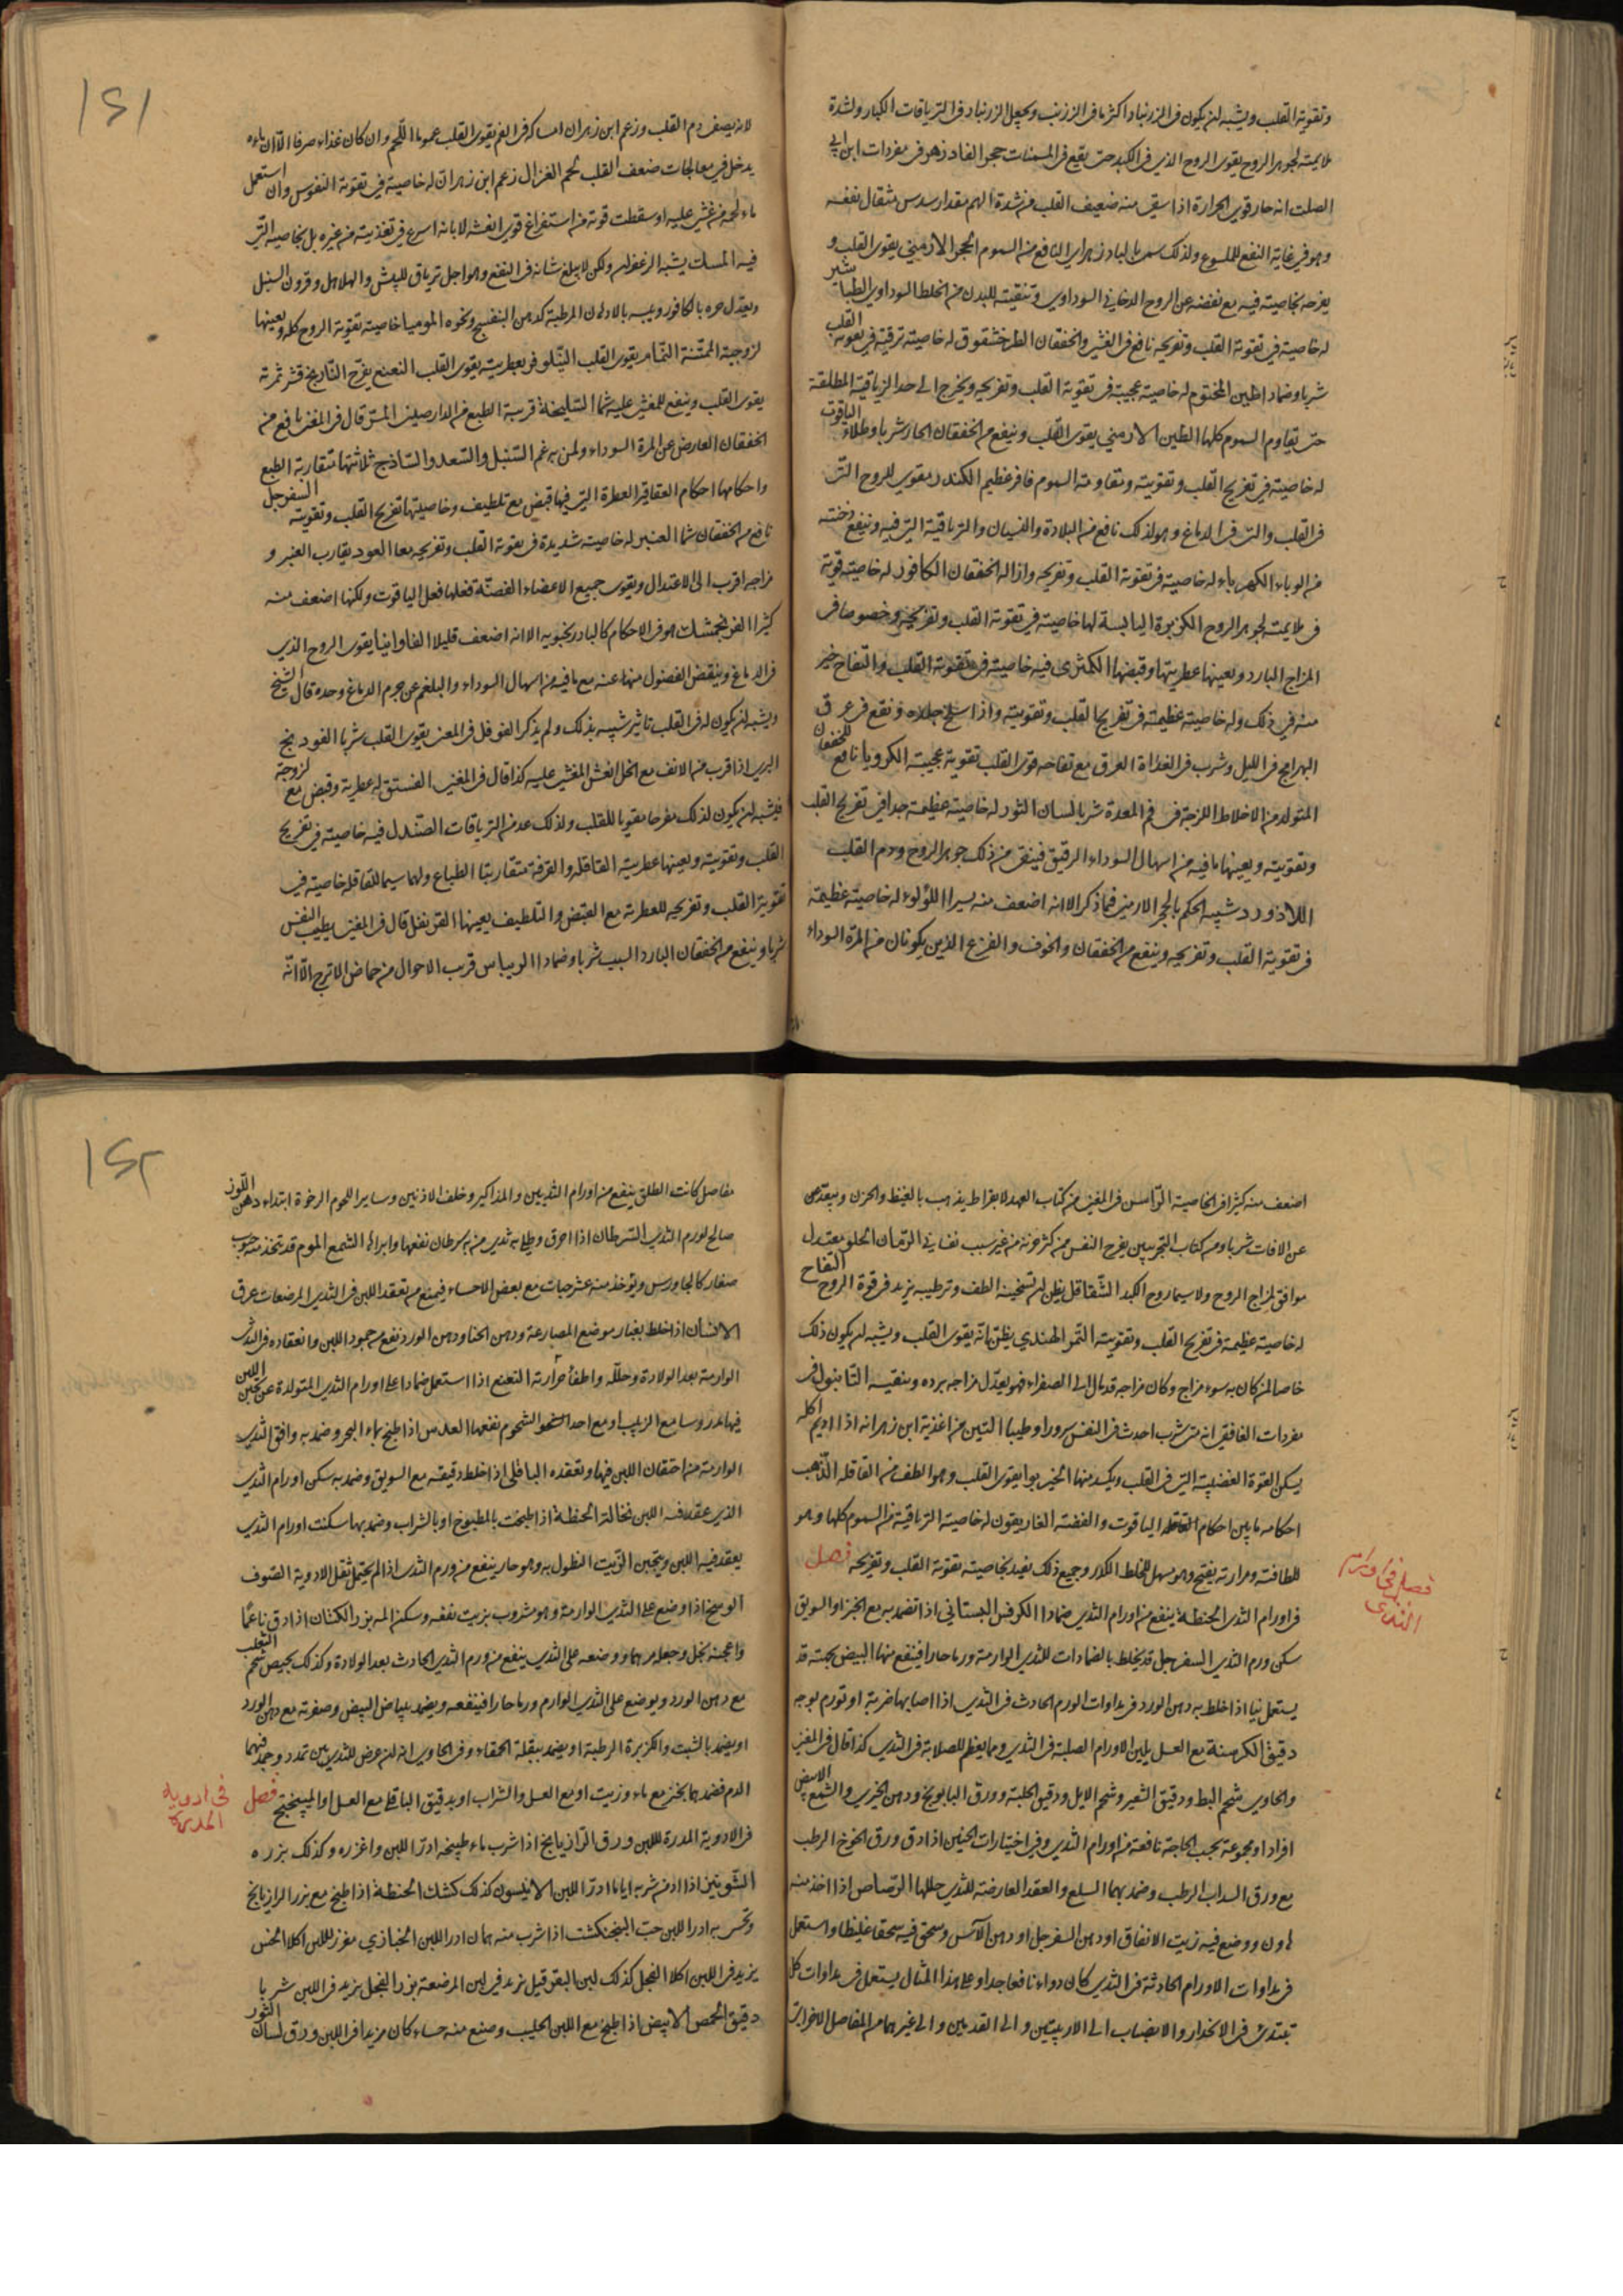 وتقوية القلب ويشبه ان يكون في الزرنباد اكثر ما في الزرنب ويجعل الزرنباد في الترياقات الكبار ولشدة
ملايمته لجوهر الروح يقوى الروح الذي في الكبد حتى يقع في المسمنات حجر الفادزهر في مفردات ابن ابي
الصلت انه حار قوي الحرارة اذا سقي منه ضعيف القلب من شدة الهم مقدار سدس مثقال نفعه
وهو في غاية النفع للملسوع ولذلك سمى بالبادزهر اي النافع من السموم الحجر الارمني يقوى القلب و
يفرحه بخاصيته فيه مع نفضه عن الروح الدخاني السوداوي وتنقيته للبدن من الخلط السوداوي الطباشير
له خاصية في تقوية القلب وتفريحه نافع في الغشي والخفقان الطرخشقوق له خاصية ترياقية في تقوية القلب
شربا وضمادا الطين المختوم له خاصية عجيبة في تقوية القلب وتفريحه ويخرج الى حد الترياقية المطلقة
حتى يقاوم السموم كلها الطين الارمني يقوى القلب وينفع من الخفقان الحار شربا وطلاء الياقوت
له خاصية في تفريح القلب وتقويته ومقاومة السموم عظيم الكندر مقوي للروح التي
في القلب والتي في الدماغ وهو لذلك نافع من البلادة والنسيان والترياقية التي فيه وينفع دخنته
من الوباء الكهرباء له خاصية في تقوية القلب وتفريحه وازالة الخفقان الكافور له خاصية قوية
في ملايمته لجوهر الروح الكزبرة اليابسة لها خاصية في تقوية القلب وتفريحه وخصوصا في
المزاج البارد ويعينها عطريتها وقبضها الكمثرى فيه خاصية في تقوية القلب والتفاح خير
منه في ذلك وله خاصية عظيمة في تفريح القلب وتقويته واذا سلخ جلده ونقع في عرق
البهرامج في الليل وشرب في الغداة العرق مع تفاحه قوى القلب تقوية عجيبة الكرويا نافع للخفقان
المتولد من الاخلاط اللزجة في فم المعدة شربا لسان الثور له خاصية عظيمة جدا في تفريح القلب
وتقويته ويعينها ما فيه من اسهال السوداء الرقيق فينقى من ذلك جوهر الروح ودم القلب
اللازورد شبيه الحكم بالحجر الارمني فما ذكر الا انه اضعف منه يسيرا اللؤلوء له خاصية عظيمة
في تقوية القلب وتفريحه وينفع من الخفقان والخوف والفزع الذين يكونان من المرة السوداء
١٤١
لانه يصفي دم القلب وزعم ابن زهر ان امساكه في الفم يقوى القلب عموما اللحم وان كان غذاء صرفا الا ان ماءه
يدخل في معالجات ضعف القلب لحم الغزال زعم ابن زهر ان له خاصية في تقوية النفوس وان استعمل
ماء لحمه من غشي عليه او سقطت قوته من استفراغ قوي انعشه لا بانه اسرع في تغذيته من غيره بل بخاصية التي
فيه المسك يشبه الزعفران ولكن لا يبلغ شانه في النفع وهو اجل ترياق للبيش والهلاهل وقرون السنبل
ويعدل حره بالكافور ويبسه بالادهان المرطبة كدهن البنفسج ونحوه الموميا خاصية تقوية الروح كله ويعينها
لزوجية الممتنة النمام يقوى القلب النيلوفر بعطريته يقوى القلب النعنع يفرح النارنج قشر ثمرته
يقوى القلب وينفع للمغشى عليه شما السليخة قريبة الطبع من الدارصيني المسك قال في المغنى نافع من
الخفقان العارض عن المرة السوداء ولمن به غم السنبل والسعد والساذج ثلاثتها متقاربة الطبع
واحكامها احكام العقاقير العطرة التي فيها قبض مع تلطيف وخاصيتها تفريح القلب وتقويته السفرجل
نافع من الخفقان شما العنبر له خاصية شديدة في تقوية القلب وتفريحه معا العود يقارب العنبر و
مزاجه اقرب الى الاعتدال ويقوى جميع الاعضاء الفضة فعلها فعل الياقوت ولكنها اضعف منه
كثيرا الفرنجمشك هو في الاحكام كالبادرنجبويه الا انه اضعف قليلا الفاوانيا يقوى الروح الذي
في الدماغ وينقض الفضول منها عنه مع ما فيه من اسهال السوداء والبلغم عن جرم الدماغ وحده قال الشيخ
ويشبه ان يكون له في القلب تاثير شبيه بذلك ولم يذكر الفوفل في المغنى يقوى القلب شربا الفودنج
البري اذا قرب من الانف مع الخل انعش المغشى عليه كذا قال في المغنى الفستق له عطرية وقبض مع لزوجة
فيشبه ان يكون لذلك مفرحا مقويا للقلب ولذلك عد من الترياقات الصندل فيه خاصية في تفريح
القلب وتقويته ويعينها عطريته القاقلة والقرفة متقاربتا الطباع ولهما سيما للقاقلة خاصية في
تقوية القلب وتفريحه للعطرية مع القبض والتلطيف يعينها القرنفل قال في المغنى يطيب النفس
شربا وينفع من الخفقان البارد السبب شربا وضمادا الريباس قريب الاحوال من حماض الاترج الا انه
اضعف منه كثيرا في الخاصية الراسن في المغنى من كتاب العهد لابقراط يذهب بالغيظ والحزن ويبعد من
عن الافات شربا ومن كتاب التجربيين يفرح النفس ممن كثر حزنه من غير سبب نفساني الرمان الحلو معتدل
موافق لمزاج الروح ولا سيما روح الكبد الشقاقل يظن ان تسخينه الطف وترطيبه يزيد في قوة الروح التفاح
له خاصية عظيمة في تفريح القلب وتقويته التمر الهندي يظن انه يقوى القلب ويشبه ان يكون ذلك
خاصا لمن كان به سوء مزاج وكان مزاجه قد مال الى الصفراء فهو يعدل مزاجه ببرده وينقيه التانبول في
مفردات الغافقي انه متى شرب احدث في النفس سرورا وطيبا التين من اغذية ابن زهر انه اذا اديم اكله
يسكن القوة الغضبية التي في القلب ويكسد منها الخير بوا يقوى القلب وهو الطف من القاقلة الذهب
احكامه ما بين احكام الياقوت والفضة الغاريقون له خاصية الترياقية من السموم كلها وهو
للطافته ومرارته يفتح وهو مسهل للخلط الكدر وجميع ذلك تفيد بخاصية تقوية القلب وتفريحه فصل
فصل في اورام
الثدى
في اورام الثدى الحنطة ينفع من اورام الثدي ضمادا الكرفس البستاني اذا تضمد به مع الخبز او السويق
سكن ورم الثدي السفرجل قد يخلط بالضمادات للثدي الوارمة ورما حارا فينفع منها البيض بجملته قد
يستعمل نيا اذا خلط به دهن الورد في مداوات الورم الحادث في الثدي اذا اصابها ضربة او تورم بوجه
دقيق الكرسنة مع العسل يلين الاورام الصلبة في الثدي ومما يعظم للصلابة في الثدي كذا قال في المغنى
والحاوي شحم البط ودقيق الشعير وشحم الايل ودقيق الحلبة وورق البابونج ودهن الخيري والشمع الابيض
افرادا ومجموعة بحسب الحاجة نافعة من اورام الثدي وفي اختيارات الحنين اذا دق ورق الخوخ الرطب
مع ورق السداب الرطب وضمد بهما السلع والعقد العارضة للثدي حللها الرصاص اذا اخذ منه
هاون ووضع فيه زيت الانفاق او دهن السفرجل او دهن الآس وسحق فيه سحقا غليظا واستعمل
في مداوات الاورام الحادثة في الثدي كان دواء نافعا جدا وعلى هذا المثال يستعمل في مداوات كل
تبتدئ في الانحدار والانصباب الى الاربيتين والى القدمين والى غيرهما من المفاصل الاخر اتى
١٤٢
مفاصل كانت الطلق ينفع من اورام الثديين والمذاكير وخلف الاذنين وساير اللحوم الرخوة ابتداء دهن اللوز
صالح لورم الثدي السرطان اذا احرق وطلى به ثدي من به سرطان نفعها وابراها الشمع الموم قد يتخذ منه حبوب
صغار كالجاورس ويؤخذ منه عشر حبات مع بعض الاحساء فيمنع من تعقد اللبن في الثدي المرضعات عرق
الانسان اذا خلط بغبار موضع المصارعة ودهن الحنا ودهن الورد نفع من جمود اللبن وانعقاده في الثدى
الوارمة بعد الولادة وحلله واطفأ حرارته النعنع اذا استعمل ضمادا على اورام الثدي المتولدة عن تجبن اللبن
فيها مدروسا مع الزبيب او مع احد الشحوم نفعها العدس اذا طبخ بماء البحر وضمد به وافق الثدي
الوارمة من احتقان اللبن فيها وتعقده الباقلى اذا خلط دقيقه مع السويق وضمد به سكن اورام الثدي
الذي عقد فيه اللبن نخالة الحنطة اذا طبخت بالمطبوخ او بالشراب وضمد بها سكنت اورام الثدي
يعقد فيه اللبن ويتجبن الزيت النطول به وهو حار ينفع من ورم الثدى اذا لم يحتمل ثقل الادوية الصوف
الوسخ اذا وضع على الثدي الوارمة وهو مشروب بزيت نفعه وسكن المه بزر الكتان اذا دق ناعما
واعجنه بخل وجعل مرهما ووضعه على الثدي ينفع من ورم الثدي الحادث بعد الولادة وكذلك يحيص شحم الثعلب
مع دهن الورد ويوضع على الثدي الوارم ورما حارا فينفعه ويضمد ببياض البيض وصفرته مع دهن الورد
او يضمد بالشبت والكزبرة الرطبة او يضمد ببقلة الحمقاء وفي الحاوي انه ان عرض للثديين تمدد وجمد فيهما
الدم فضمدهما بخبز مع ماء وزيت او مع العسل والشراب او بدقيق الباقلى مع العسل او الميبختج فصل
في ادوية
المدرة
في الادوية المدرة للبن ورق الرازيانج اذا شرب ماء طبيخه ادر اللبن واغزره وكذلك بزره
الشونيز اذا ادمن شربه اياما ادر اللبن الانيسون كذلك كشك الحنطة اذا طبخ مع بزر الرازيانج
وتحسى به ادر اللبن حب البنجنكشت اذا شرب منه درهمان ادر اللبن الخبازي مغزر للبن اكلا الخس
يزيد في اللبن اكلا الفجل كذلك لبن البقر قيل يزيد في لبن المرضعة بزر الفجل يزيد في اللبن شربا
دقيق الحمص الابيض اذا طبخ مع اللبن الحليب وصنع منه حساء كان مزيدا في اللبن ورق لسان الثور